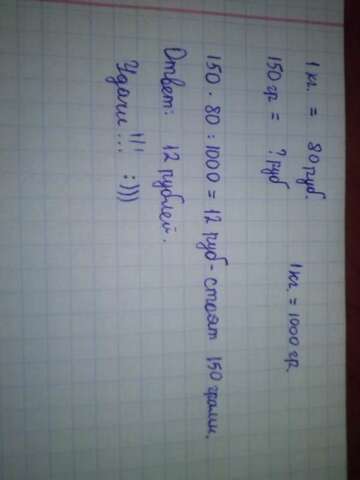 1 кг. = 80 руб.
150 гр = ? руб
1 кг. = 1000 гр.
150 · 80 : 1000 = 12 руб - стоят 150 грамм.
Ответ: 12 рублей.
Удачи!!!... :))))